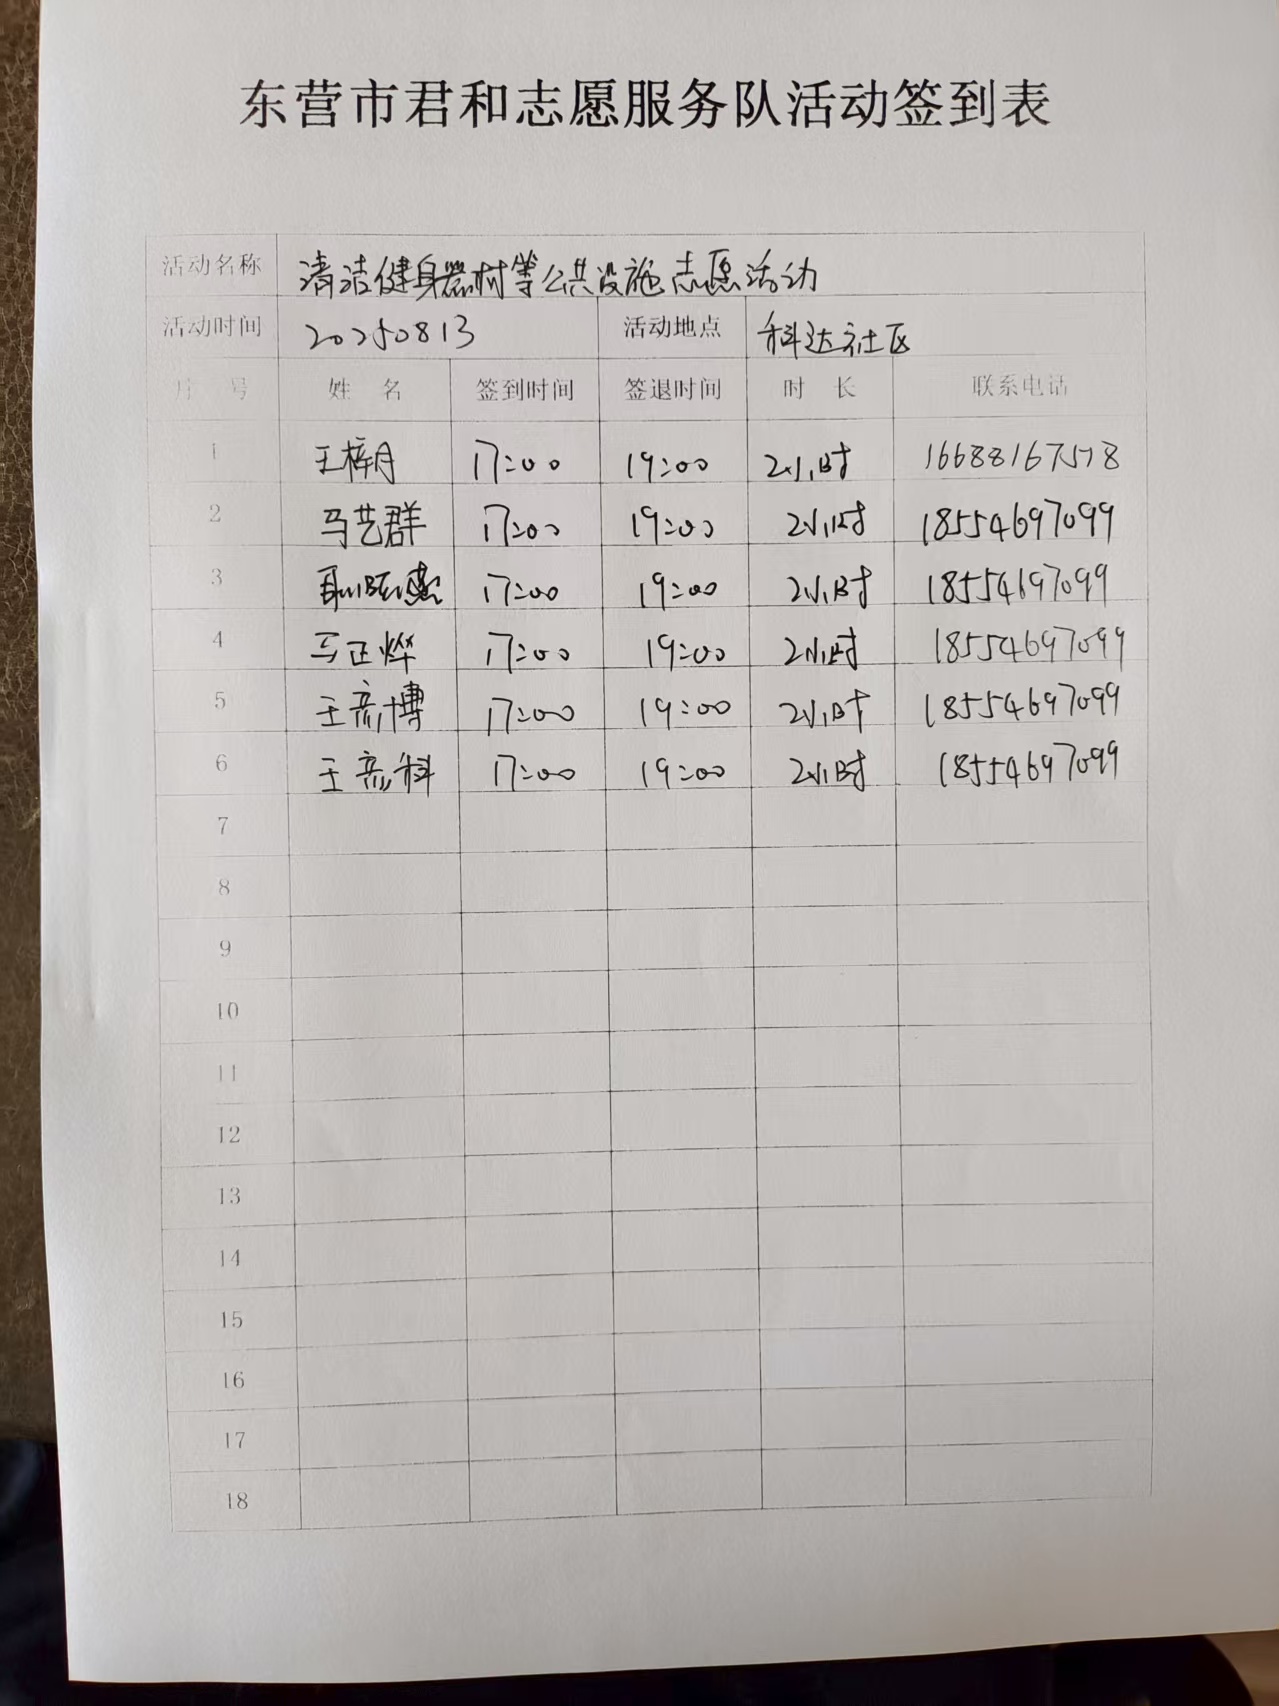 东营市君和志愿服务队活动签到表
活动名称 清洁健身器材等公共设施志愿活动
活动时间 20250813 活动地点 科达社区
序 号 姓 名 签到时间 签退时间 时 长 联系电话
1 王梓月 17:00 19:00 2小时 16688167578
2 马艺群 17:00 19:00 2小时 18554697099
3 17:00 19:00 2小时 18554697099
4 马正烨 17:00 19:00 2小时 18554697099
5 王彦博 17:00 19:00 2小时 18554697099
6 王彦科 17:00 19:00 2小时 18554697099
7
8
9
10
11
12
13
14
15
16
17
18